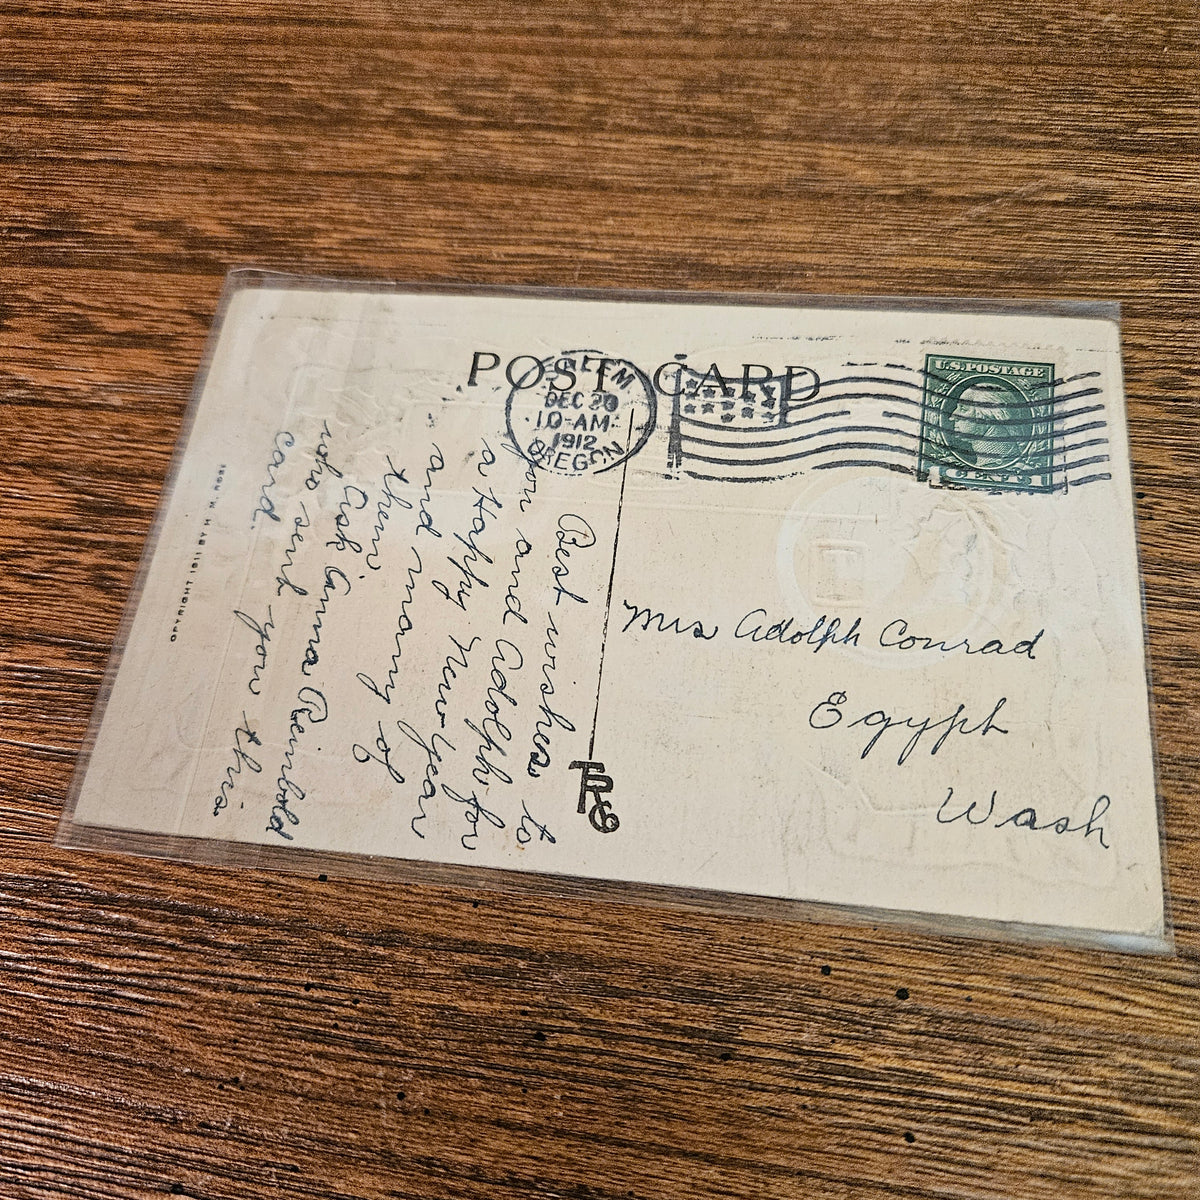 POST CARD
SALEM
DEC 20
10-AM
1912
OREGON
U.S. POSTAGE
1 CENT 1
Best wishes to
you and Adolph for
a Happy New Year
and many of
them
Ask Anna Reimbold
who sent you this
card.
Mrs Adolph Conrad
Egypt
Wash
COPYRIGHT 1911 BY H. M. ROSE
TRG